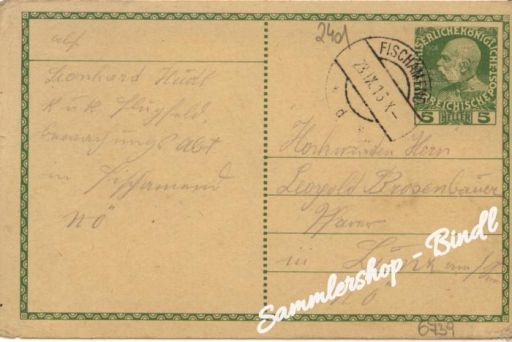 abs
Leonhard Hudl
k. u. k. Flugfeld,
bewachungs Abt
in Fischamend
NÖ
240l
FISCHAMEND
23.IX.15.X-
d
KAISERLICHE KÖNIGLICHE
ÖSTERREICHISCHE POST
5 HELLER 5
Hochwürden Herrn
Leopold Brosenbauer
Pfarrer
in
Sammlershop - Bindl
6739